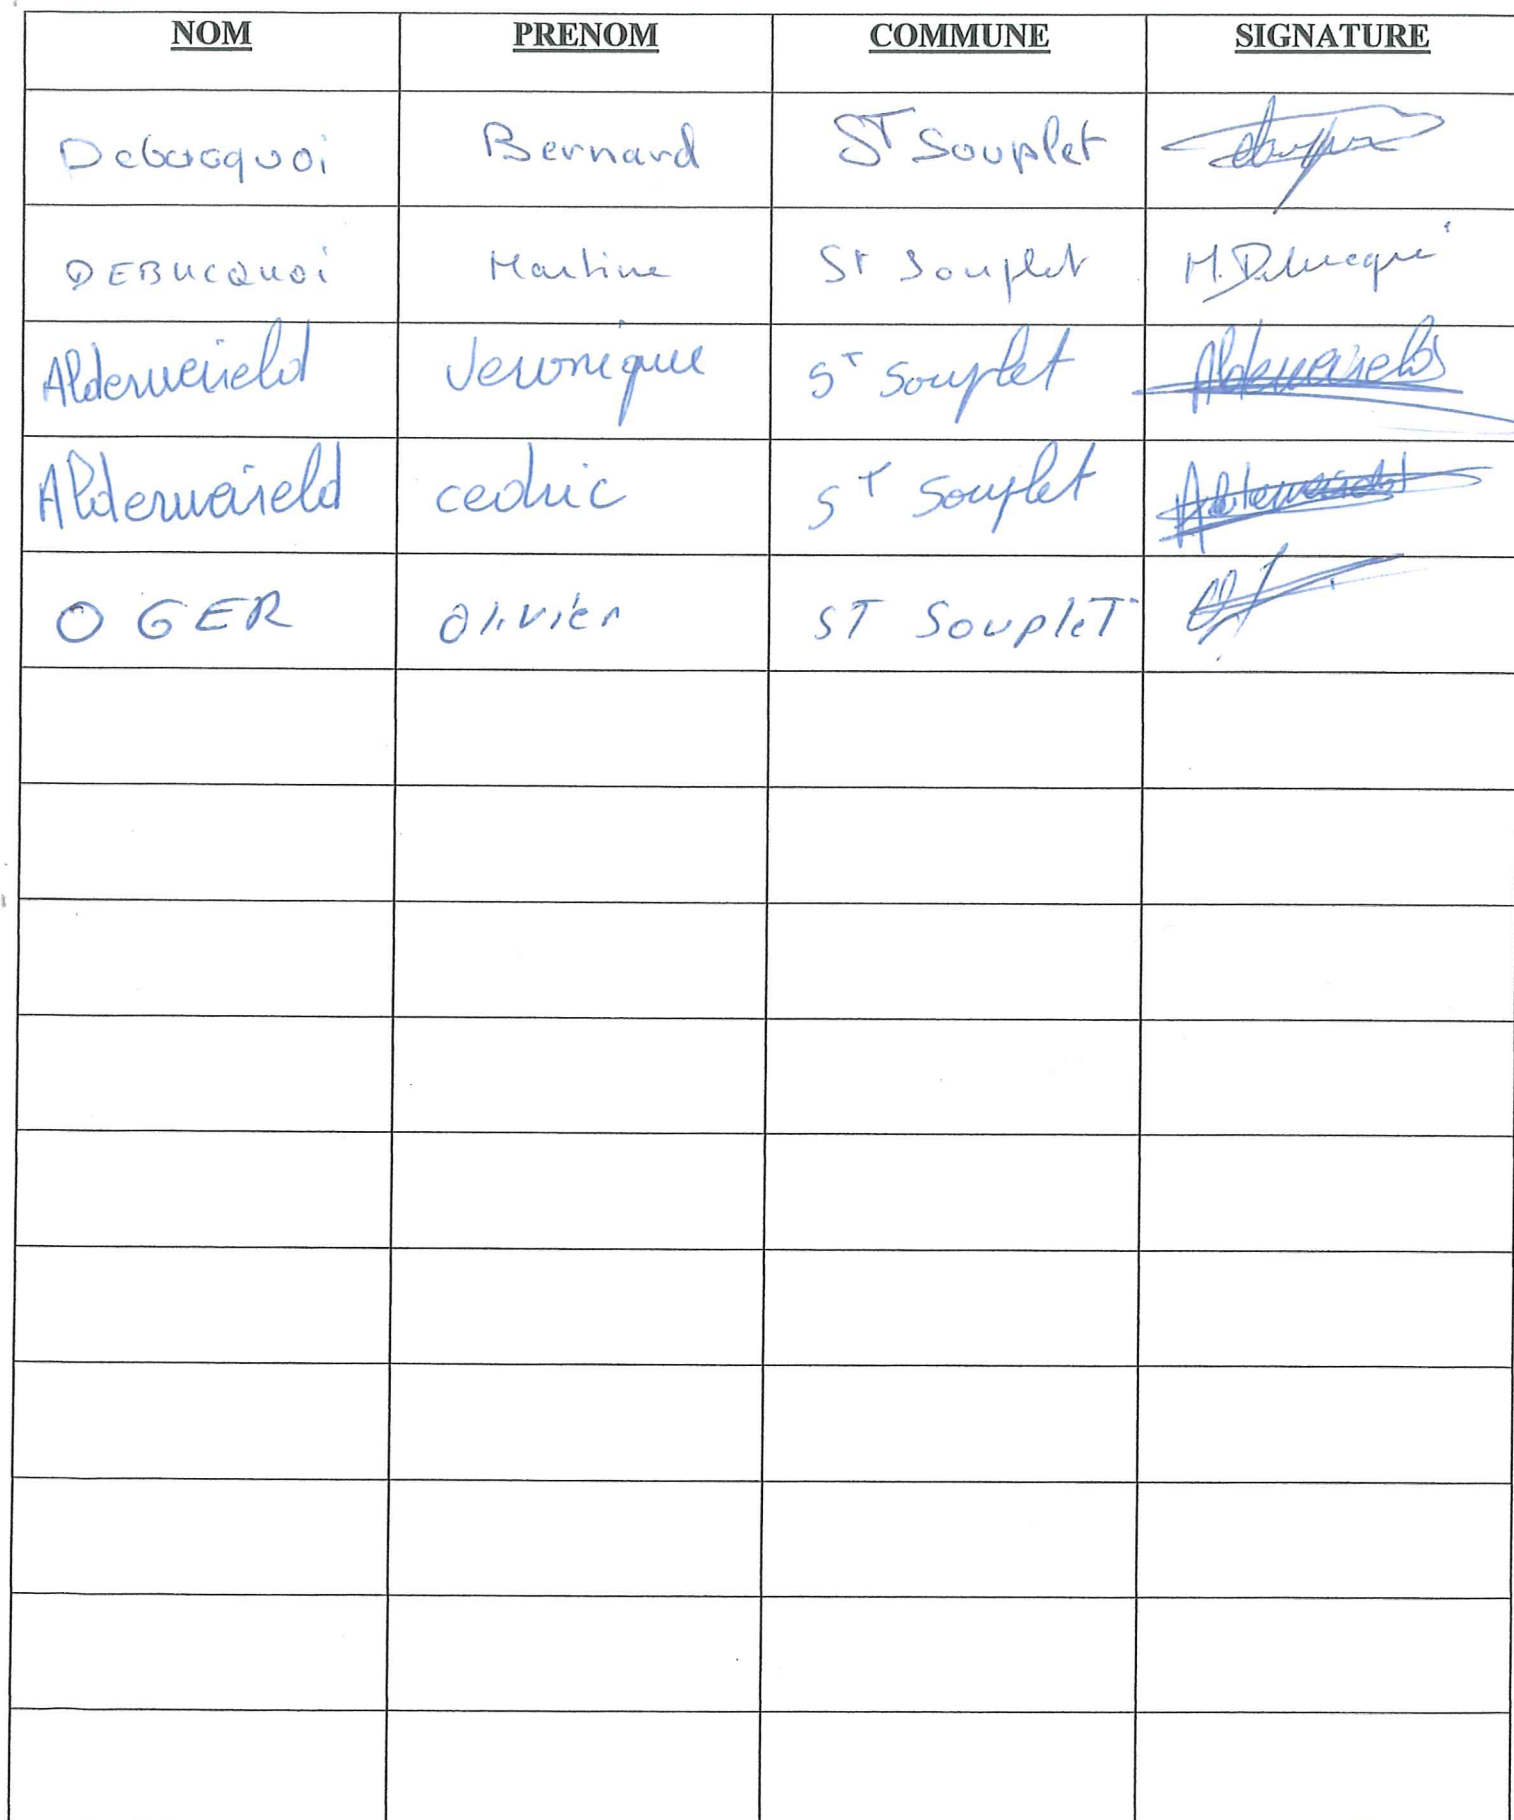 NOM PRENOM COMMUNE SIGNATURE
Debucquoi Bernard ST Souplet
DEBUCQUOi Martine St Souplet M.Debucquoi
Alderweireld Veronique ST Souplet Alderweireld
Alderweireld cedric ST Souplet Alderweireld
OGER Olivier ST SoupleT